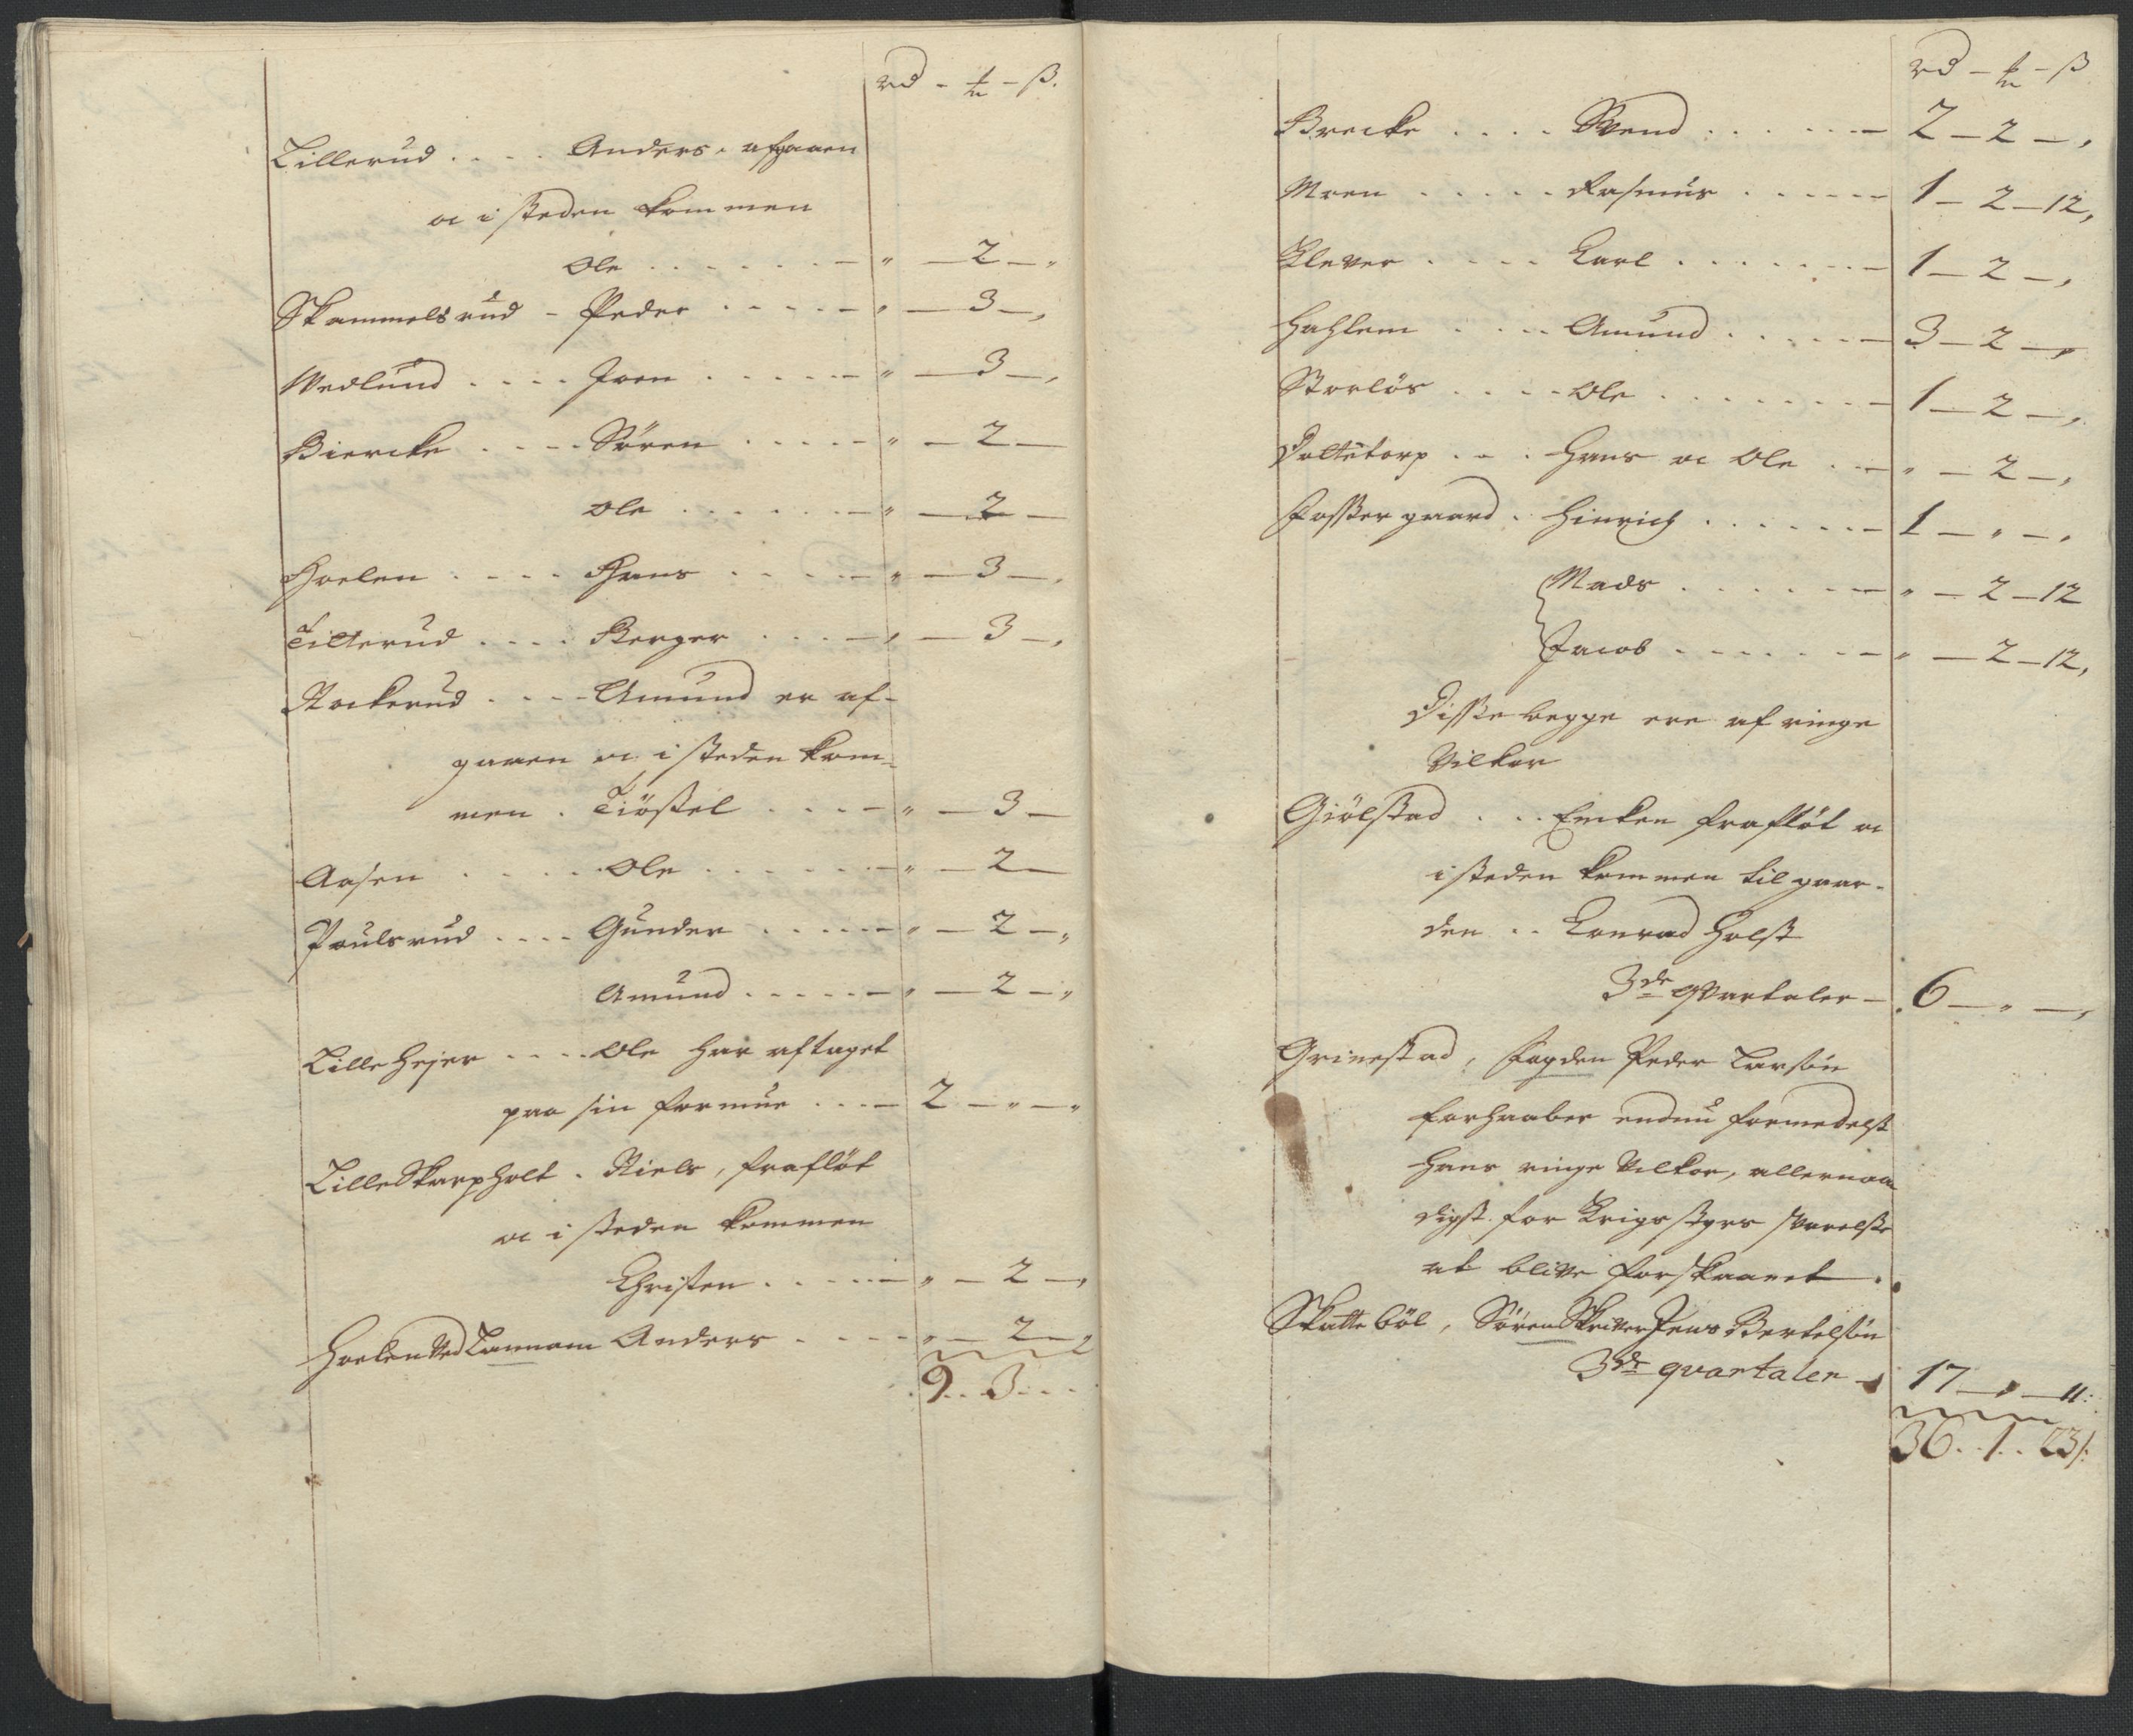 rd - ₰ - ß.
Lillerud . . . . Anders, afgaaen
oc i steden kommen
Ole . . . . . . — " — 2 — "
Skammelsrud - Peder . . . . . — " — 3 — ,
Wedlund . . . . Joen . . . . . — " — 3 — ,
Biercke . . . . Sören . . . . . — " — 2 —
Ole . . . . . . — " — 2 —
Hoelen . . . . Hans . . . . — " — 3 — ,
Tilterud . . . . Berger . . . — , — 3 — ,
Stockerud . . . . Amund er af-
gaaen oc i steden kom-
men . Tiöstel . . . . — " — 3 —
Aasen . . . . Ole . . . . . . — " — 2 —
Poulsrud . . . . Gunder . . . . . — " — 2 — "
Amund . . . . . — " — 2 — "
Lille Hejer . . . . Ole har aftaget
paa sin formue . . . — 2 — " — "
Lille Skarpholt . Niels, frafløt
oc i steden kommen
Christen . . . . . — " — 2 — ,
Hoelen Ved Anders . . . . " — 2 — ,
9 . . 3 . . .
rd — ₰ — ß
Brecke . . . . Svend . . . . . — 2 — 2 — ,
Moen . . . . . Rasmus . . . . . 1 — 2 — 12,
Klever . . . . Carl . . . . . . — 1 — 2 — ,
Hahlem . . . . Amund . . . . . — 3 — 2 — ,
Storlös . . . . Ole . . . . . . . — 1 — 2 — ,
Doltetorp . . . Hans oc Ole . . — " — 2 — ,
Fossergaard . Hinrich . . . . . . — 1 — " — .
Mads . . . . . . — " — 2 — 12
Jacob . . . . . . — " — 2 — 12,
Disse begge ere af ringe
Vilkor
Giölstad . . . Encken frafløt oc
i steden kommen til gaar-
den . . Conrad Holst
3de qvartaler — 6 — " — ,
Grinestad, Fogden Peder Larsön
forhaaber endnu formedelst
hans ringe Vilkor, allernaa
digst for Krigsstyrs svarelse
at blive forskaanet .
Skattebøl, Sören Skriver Jens Bertelsön
3de qvartaler — 17 — , — 11:
36 . . 1 . . 23/: